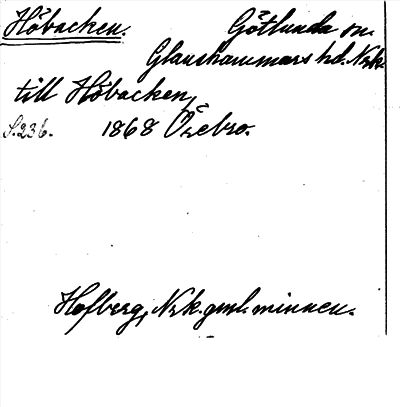 Höbacken. Götlunda sn.
Glanshammars hd. Nrk.
till Höbacken,
S. 236. 1868 Örebro.
Hofberg, Nrk. gml. minnen.